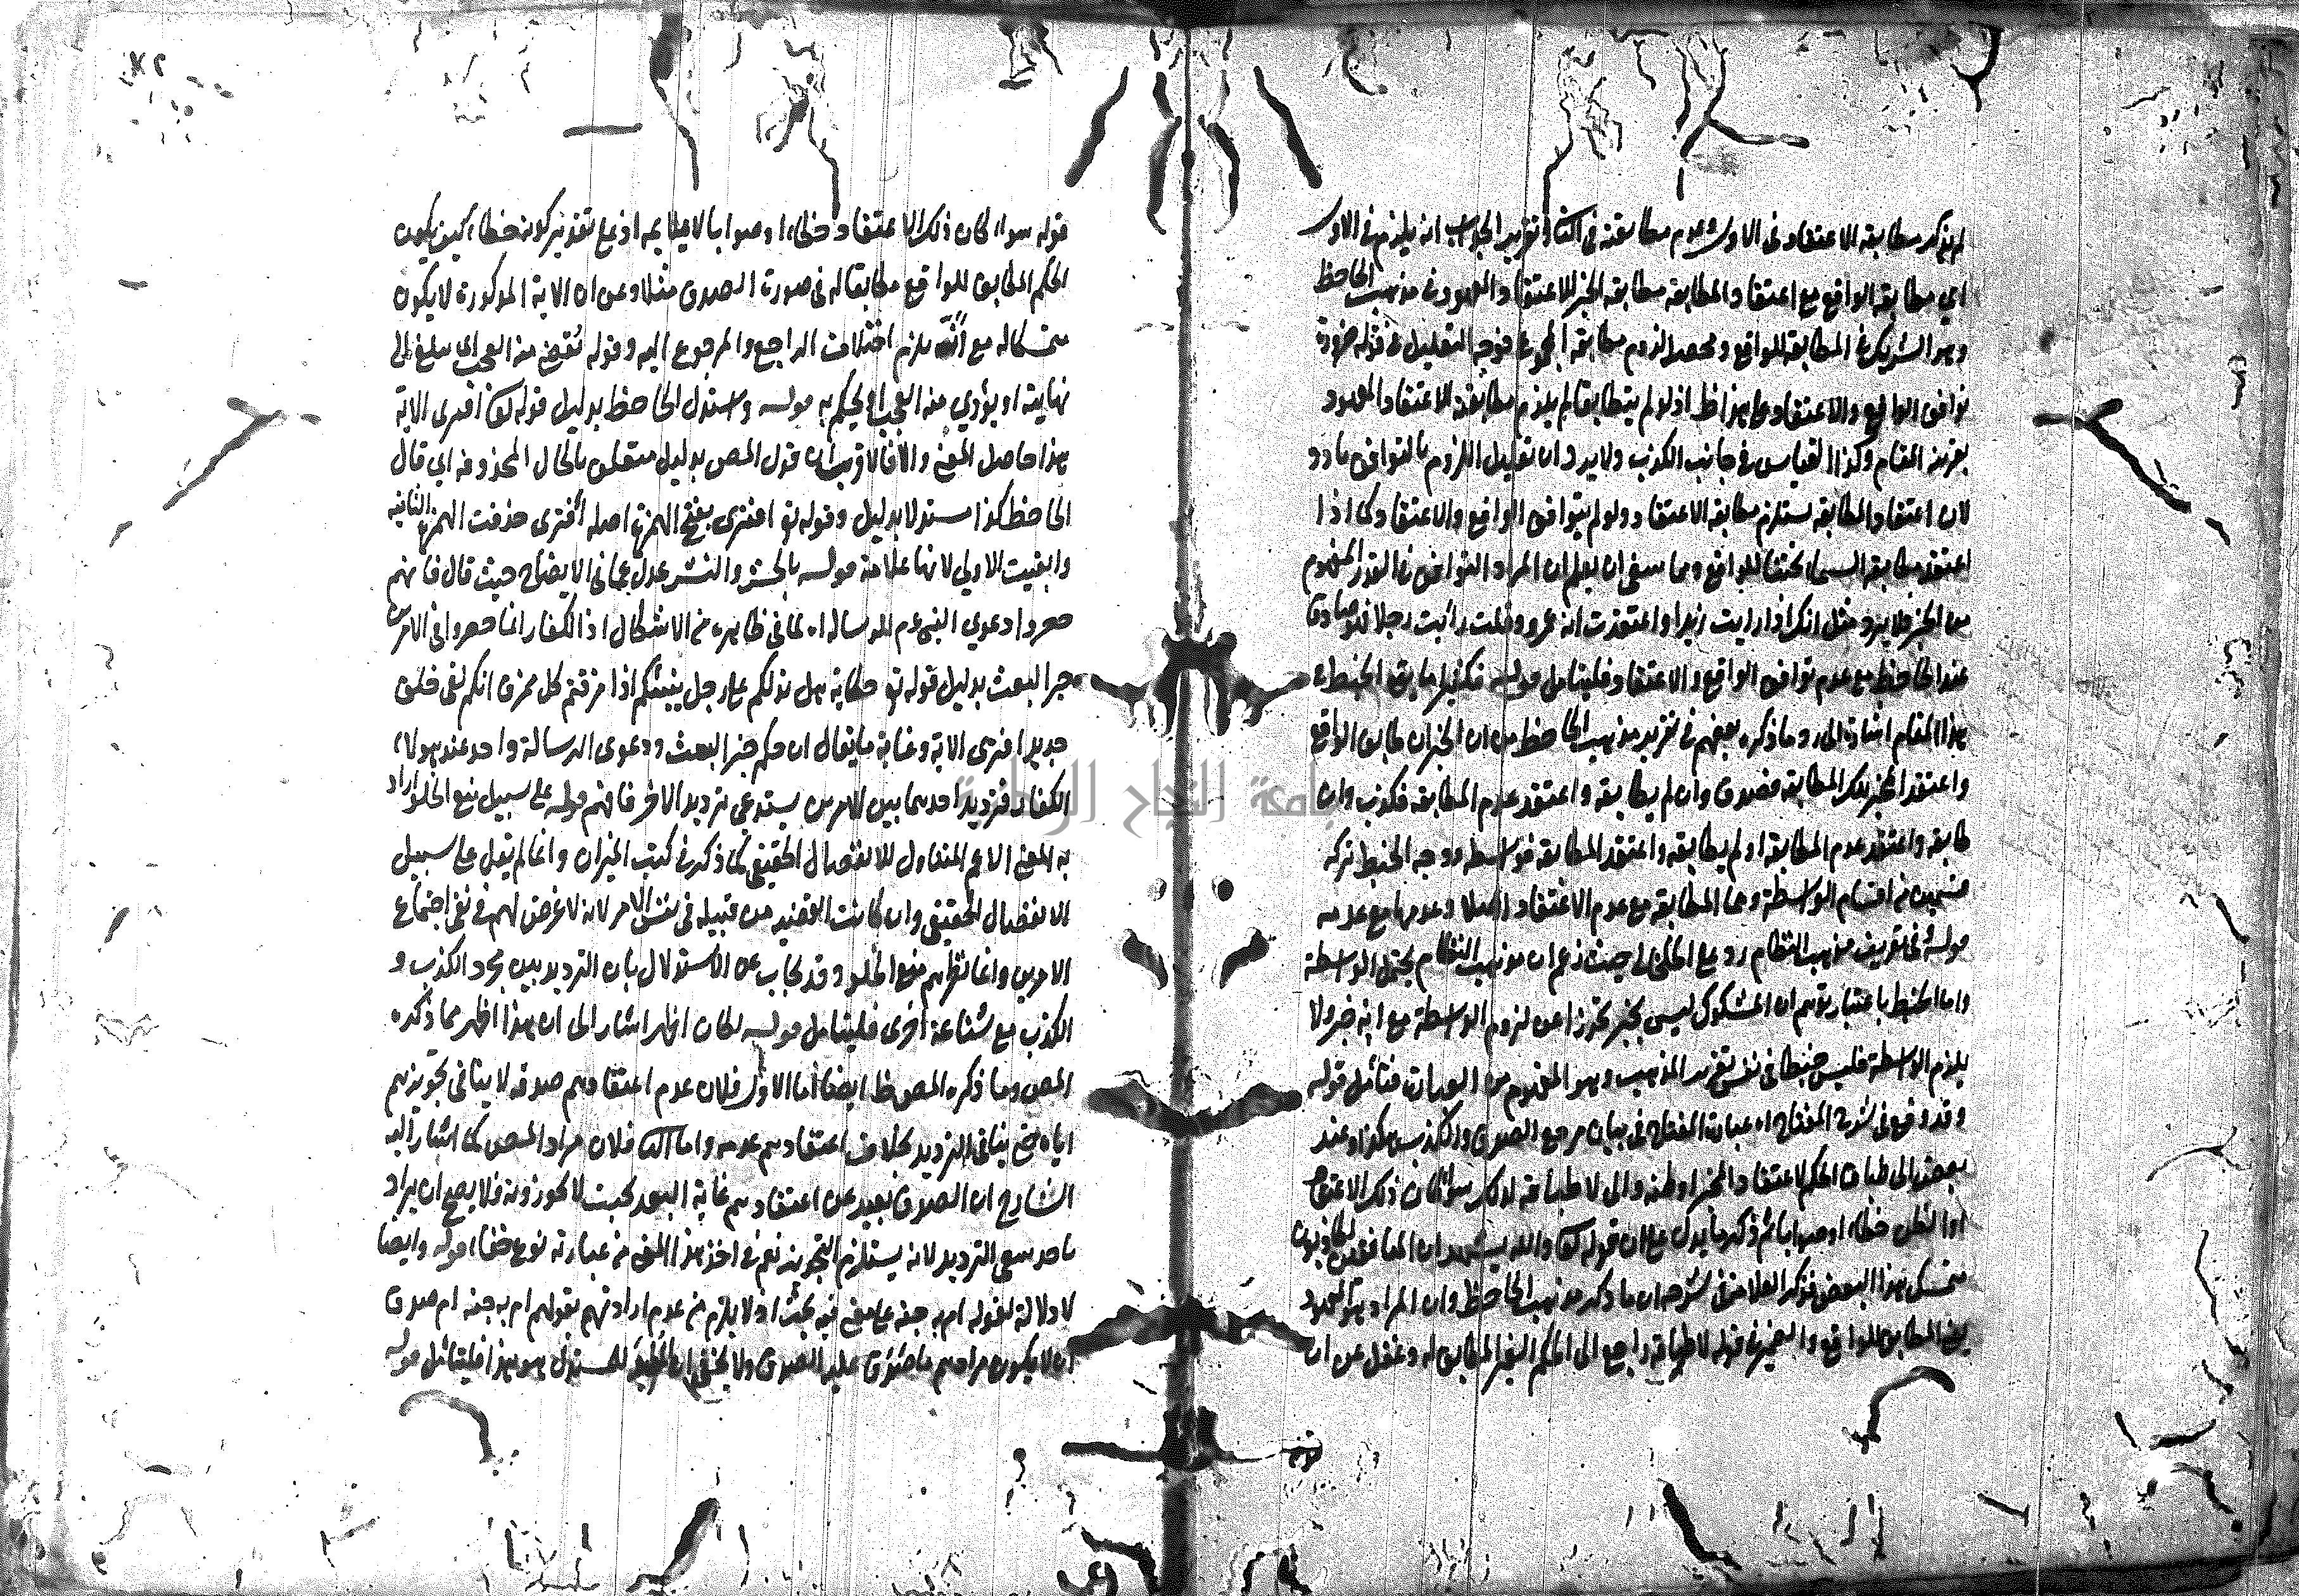 لم يذكر مطابقة الاعتقاد فى الاول وعدم مطابقته فى الثانى تقرير الجواب انه يلزم فى الاول
اى مطابقة الواقع مع اعتقاد المطابقة مطابقة الخبر للاعتقاد والمعهود فى مذهب الجاحظ
وهو الشريك فى المطابقة للواقع لزوم مطابقة المجموع فوجه التعليل فى قوله ضرورة
توافق الواقع والاعتقاد على هذا ظ اذ لو لم يتطابقا لم يلزم مطابقة الاعتقاد المعهود
بقرينة المقام وكذا القياس فى جانب الكذب ولا يرد ان تعليل اللزوم بالتوافق
لان اعتقاد المطابقة يستلزم مطابقة الاعتقاد ولو لم يتوافق الواقع والاعتقاد كما اذا
اعتقد مطابقة السماء تحتنا للواقع ومما ينبغى ان يعلم ان المراد التوافق فى القدر المفهوم
من الخبر فلا يرد مثل انك اذا رايت زيدا واعتقدت انه عمرو وقلت رايت رجلا فانه صادق
عند الجاحظ مع عدم توافق الواقع والاعتقاد فليتامل قوله فكثيرا ما يقع الخبط فى
هذا المقام اشارة الى رد ما ذكره بعضهم فى تقرير مذهب الجاحظ من ان الخبر ان طابق الواقع
واعتقد المخبر تلك المطابقة فصدق وان لم يطابقه واعتقد عدم المطابقة فكذب وان
طابقه واعتقد عدم المطابقة او لم يطابقه واعتقد المطابقة فواسطة ووجه الخبط تركه
قسمين من اقسام الواسطة وهما المطابقة مع عدم الاعتقاد اصلا وعدمها مع عدمه
قوله فى تعريف مذهب النظام رد على الخلخالى حيث زعم ان مذهب النظام يحتمل الواسطة
واما الخبط باعتبار توهم ان المشكوك ليس بخبر تحرزا عن لزوم الواسطة مع انه خبر ولا
يلزم الواسطة فليس خبطا فى نفس تقرير المذهب وهو المفهوم من العبارة فتأمل قوله
وقد وقع فى شرح المفتاح اه عبارة المفتاح فى بيان مرجع الصدق والكذب هكذا وعند
بعض الى طباق الحكم لاعتقاد المخبر او ظنه والى لا طباقه لذلك سواء كان ذلك الاعتقاد
او الظن خطاء او صوابا ثم ذكر ما يدل على ان قوله تعا والله يشهد ان المنافقين لكاذبون
متمسك هذا البعض فذكر العلامة فى شرحه ان ما ذكر مذهب الجاحظ وان المراد بالحكم
المطابق للواقع والضمير فى قوله لا طباقه راجع الى الحكم الغير المطابق له وغفل عن ان
قوله
قوله سواء كان ذلك الاعتقاد خطاء او صوابا لا يلايمه اذ على تقدير كونه خطاء كيف يكون
الحكم المطابق للواقع مطابقا له فى صورة الصدق مثلا وعن ان الاية المذكورة لا يكون
متمسكا له مع انّه يلزم اختلاف الراجع والمرجوع اليه وقوله تقضى منه العجب اى يبلغ الى
نهايته او يؤدى منه العجب او يحكم به قوله واستدل الجاحظ بدليل قوله تعا افترى الاية
هذا حاصل المعنى والا فالاقرب ان قول المص بدليل متعلق بالحال المحذوفة اى قال
الجاحظ كذا مستدلا بدليل وقوله تع افترى بفتح الهمزة اصله أافترى حذفت الهمزة الثانية
وابقيت الاولى لانها علامة قوله بالحشر والنشر عدل عما فى الايضاح حيث قال فانهم
حصروا دعوى النبى عم للرسالة اه لما فى ظاهره من الاشكال اذ الكفار انما حصروا فى الامرين
خبر البعث بدليل قوله تع حكاية هل ندلكم على رجل ينبئكم اذا مزقتم كل ممزق انكم لفى خلق
جديد افترى الاية وغاية ما يقال ان حكم خبر البعث ودعوى الرسالة واحد عند هولاء
الكفار فترديد احدهما بين الامرين يستدعى ترديد الاخر فافهم قوله على سبيل منع الخلو اراد
به المعنى الاعم المتناول للانفصال الحقيقى كما ذكر فى كتب الميزان وانما لم يقل على سبيل
الانفصال الحقيقى وان كانت القضية من قبيله فى نفس الامر لانه لا غرض لهم فى نفى اجتماع
الامرين وانما غرضهم منع الخلو وقد يجاب عن الاستدلال بان الترديد بين مجرد الكذب و
الكذب مع شناعة اخرى فليتامل قوله لكان اظهر اشار الى ان هذا اظهر مما ذكره
المص وما ذكره المص ظ ايضا اما الاول فلان عدم اعتقادهم صدقه لا ينافى تجويزهم
اياه حتى ينافى الترديد بخلاف اعتقادهم عدمه واما الثانى فلان مراد المص كما اشار اليه
الشارح ان الصدق بعيد عن اعتقادهم غاية البعد بحيث لا يجوزونه فلا يصح ان يراد
باحد شقى الترديد لانه يستلزم التجويز نعم فى اخذ هذا المعنى من عبارته نوع خفاء قوله وايضا
لا دلالة لقوله ام به جنة على معنى فيه بحث اذ لا يلزم من عدم ارادتهم بقولهم ام به جنة ام صدق
ان لا يكون مرادهم ما صدق عليه الصدق ولا يخفى ان المفيد للمستدل هو هذا فليتامل قوله